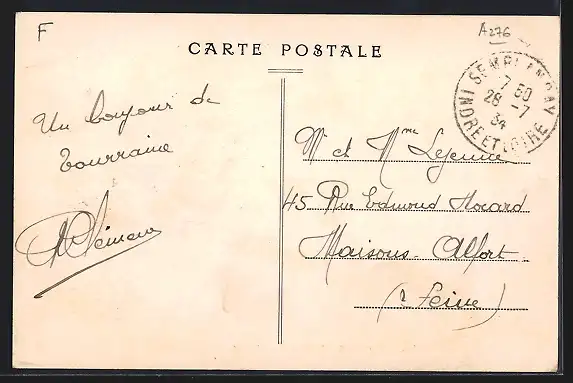 F
A276
CARTE POSTALE
SEMBLANCAY
7 50
28 - 7
34
INDRE ET LOIRE
Un bonjour de
Tourraine
Mr et Mme Lejeune
45 Rue Edmond Nocard
Maisons-Alfort
(Seine)